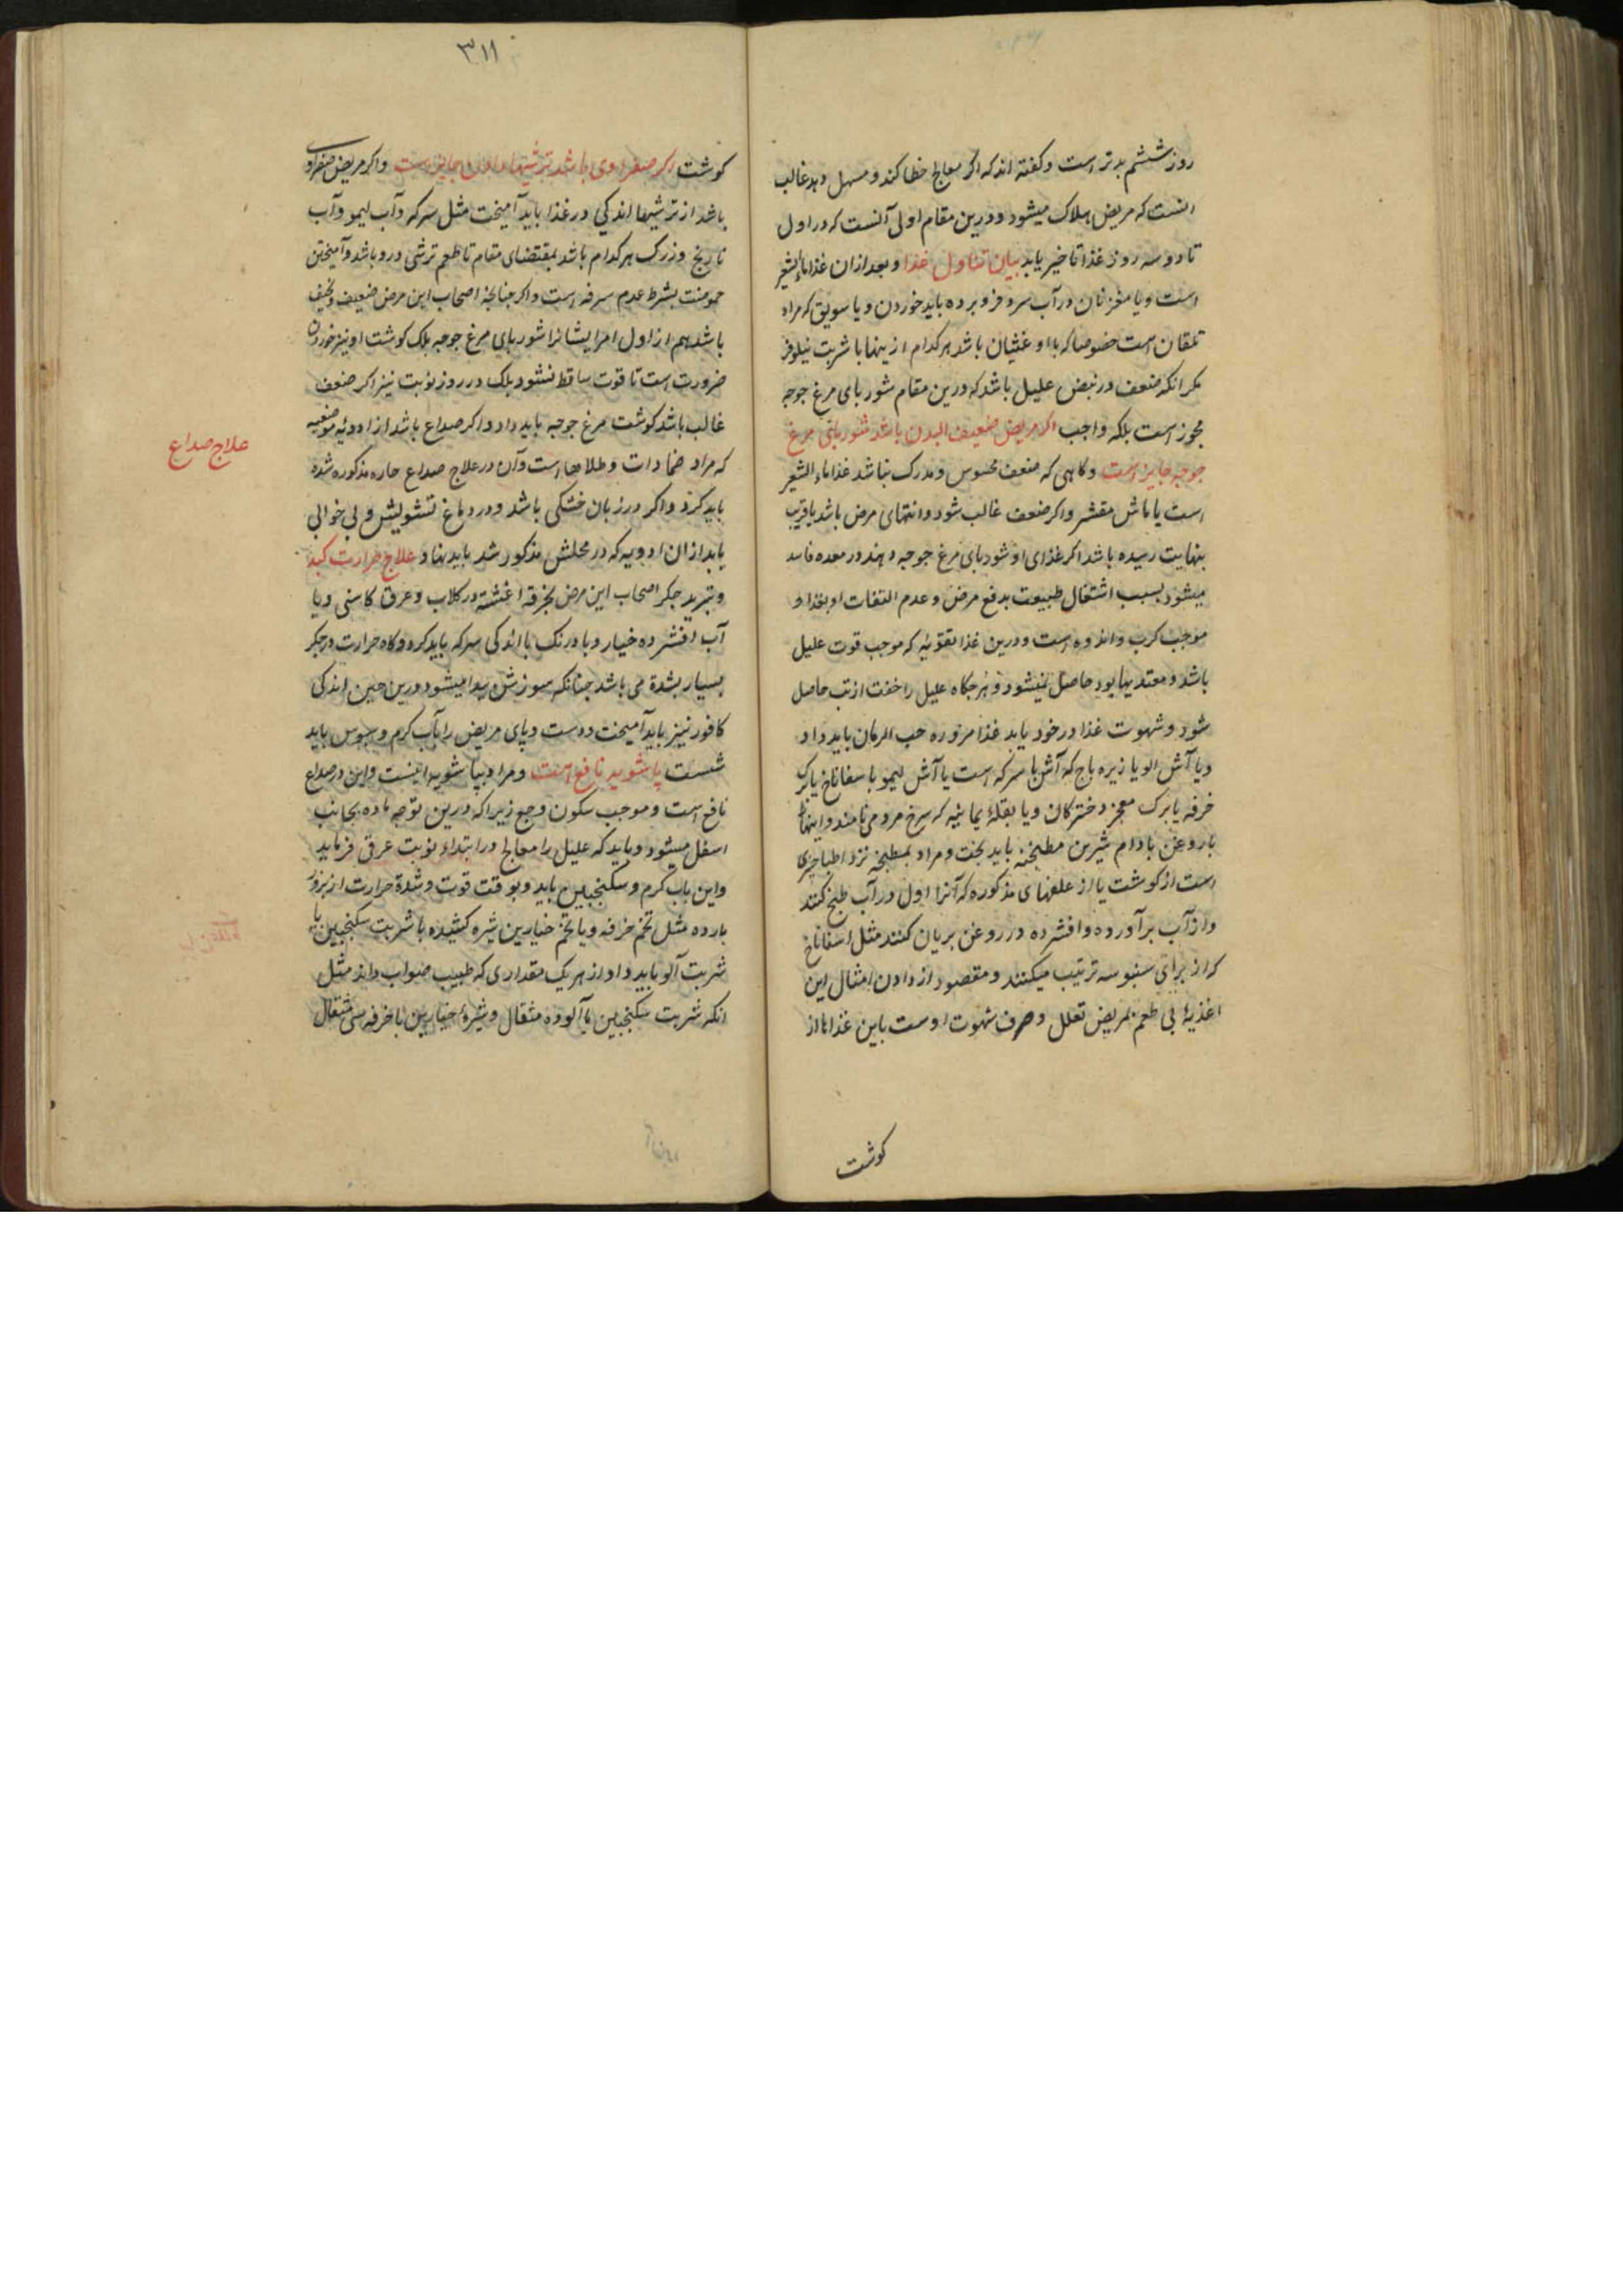 روز ششم بدتر است و کفته اند که اکر معالج خطا کند و مسهل دهد غالب
انست که مریض هلاک میشود و درین مقام اولی آنست که در اول
تا دو سه روز غذا تا خیر یابد بیان تناول غذا و بعد از ان غذا ماء الشعیر
است و یا مغز نان در آب سرد فرو برده باید خوردن و یا سویق که مراد
تلقان است خصوصا که با او غثیان باشد هر کدام ازینها با شربت نیلوفر
مکر انکه ضعف در نبض علیل باشد که درین مقام شوربای مرغ جوجه
مجوز است بلکه واجب اکر مریض ضعیف البدن باشد شوربای مرغ
جوجه جایز است و کاهی که ضعف محسوس و مدرک نباشد غذا ماء الشعیر
است یا ماش مقشر و اکر ضعف غالب شود و انتهای مرض باشد یا قریب
بنهایت رسیده باشد اکر غذای او شوربای مرغ جوجه دهند در معده فاسد
میشود بسبب اشتغال طبیعت بدفع مرض و عدم التفات او بغذا و
موجب کرب و اندوه است و درین غذا تقویه که موجب قوت علیل
باشد و معتد بها بود حاصل نمیشود و هر جکاه علیل را خفت از تب حاصل
شود و شهوت غذا در خود یابد غذا مزوره حب الرمان باید داد
و یا آش الو یا زیره باج که آش با سرکه است یا آش لیمو با سفاناخ یا برک
خرفه یا برک معجز دخترکان و یا بقلهٔ یمانیه که سرخ مرد می نامند و اینها
با روغن بادام شیرین مطبخنه باید بخت و مراد بمطبخنه نزد اطبا چیزی
است از کوشت یا از علفهای مذکوره که آنرا اول در آب طبخ کنند
و از آب برآورده و افشرده در روغن بریان کنند مثل اسفاناخ
که از برای سنبوسه ترتیب میکنند و مقصود از دادن امثال این
اغذیهٔ بی طعم بمریض تعلل و صرف شهوت اوست باین غذاها از
کوشت
۳۱۱
کوشت اکر صفراوی باشد ترشیها دادن جایز است و اکر مریض صفراوی
باشد از ترشیها اندکی در غذا باید آمیخت مثل سرکه و آب لیمو و آب
نارنج و زرک هر کدام باشد بمقتضای مقام تا طعم ترشی درو باشد و آمیختن
حموضت بشرط عدم سرفه است و اکر جنانجه اصحاب این مرض ضعیف و نحیف
باشد هم از اول امر ایشانرا شوربای مرغ جوجه بلک کوشت او نیز خوردن
ضرورت است تا قوت ساقط نشود بلک در روز نوبت نیز اکر ضعف
غالب باشد کوشت مرغ جوجه باید داد و اکر صداع باشد از ادویهٔ موضعیه
که مراد ضمادات و طلاهاست و آن در علاج صداع حاره مذکوره شده
باید کرد و اکر در زبان خشکی باشد و در دماغ تشویش و بی خوابی
باید از ان ادویه که در محلش مذکور شد باید نهاد علاج حرارت کبد
و تبرید جکر اصحاب این مرض بخرقه اغشته در کلاب و عرق کاسنی و یا
آب افشرده خیار و بادرنک با اندکی سرکه باید کرد و کاه حرارت در جکر
بسیار بشدة می باشد جنانکه سوزش پیدا میشود درین حین اندکی
کافور نیز باید آمیخت و دست و پای مریض را بآب کرم و سبوس باید
شست پاشویه نافع است و مراد بپاشویه اینست و این در صداع
نافع است و موجب سکون وجع زیرا که درین توجه ماده بجانب
اسفل میشود و باید که علیل را معالج در ابتداء نوبت عرق فرماید
و این باب کرم و سکنجبین باید و بوقت قوت و شدة حرارت از بزور
بارده مثل تخم خرفه و یا تخم خیارین شیره کشیده با شربت سکنجبین یا
شربت آلو باید داد از هر یک مقداری که طبیب صواب داند مثل
انکه شربت سکنجبین یا آلو ده مثقال و شیرهٔ خیارین یا خرفه سی مثقال
علاج صداع